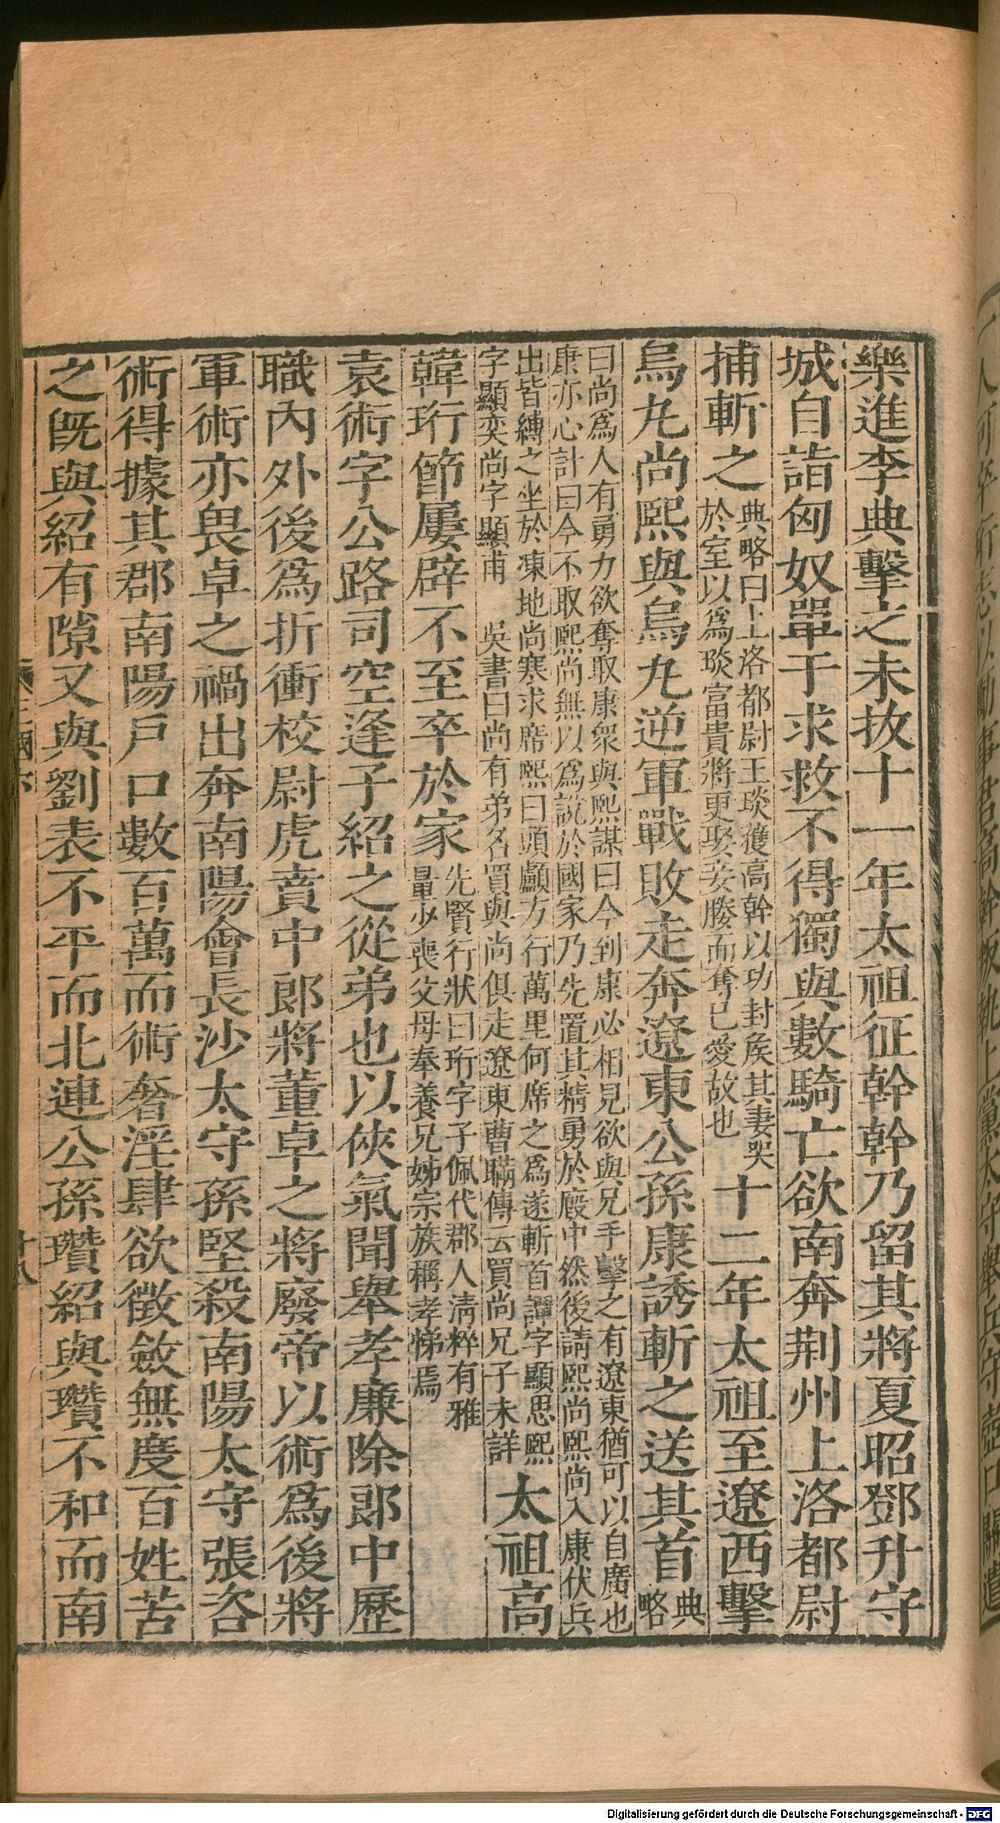 樂進李典擊之未拔十一年太祖征幹幹乃留其將夏昭鄧升守
城自詣匈奴單于求救不得獨與數騎亡欲南奔荆州上洛都尉
捕斬之典略曰上洛都尉王琰獲高幹以功封矦其妻哭
於室以爲琰富貴將更娶妾媵而奪已愛故也十二年太祖至遼西擊
烏丸尚熙與烏丸逆軍戰敗走奔遼東公孫康誘斬之送其首典
略
曰尚爲人有勇力欲奪取康衆與熙謀曰今到康必相見欲與兄手擊之有遼東猶可以自廣也
康亦心計曰今不取熙尚無以爲說於國家乃先置其精勇於廄中然後請熙尚熙尚入康伏兵
出皆縛之坐於凍地尚寒求席熙曰頭顱方行萬里何席之爲遂斬首譚字顯思熙
字顯奕尚字顯甫 吳書曰尚有弟名買與尚俱走遼東曹瞞傳云買尚兄子未詳太祖高
韓珩節屢辟不至卒於家先賢行狀曰珩字子佩代郡人淸粹有雅
量少喪父母奉養兄姊宗族稱孝悌焉
袁術字公路司空逢子紹之從弟也以俠氣聞舉孝廉除郞中歷
職內外後爲折衝校尉虎賁中郞將董卓之將廢帝以術爲後將
軍術亦畏卓之禍出奔南陽會長沙太守孫堅殺南陽太守張咨
術得據其郡南陽戶口數百萬而術奢淫肆欲徵斂無度百姓苦
之旣與紹有隙又與劉表不平而北連公孫瓚紹與瓚不和而南
十八
Digitalisierung gefördert durch die Deutsche Forschungsgemeinschaft - DFG